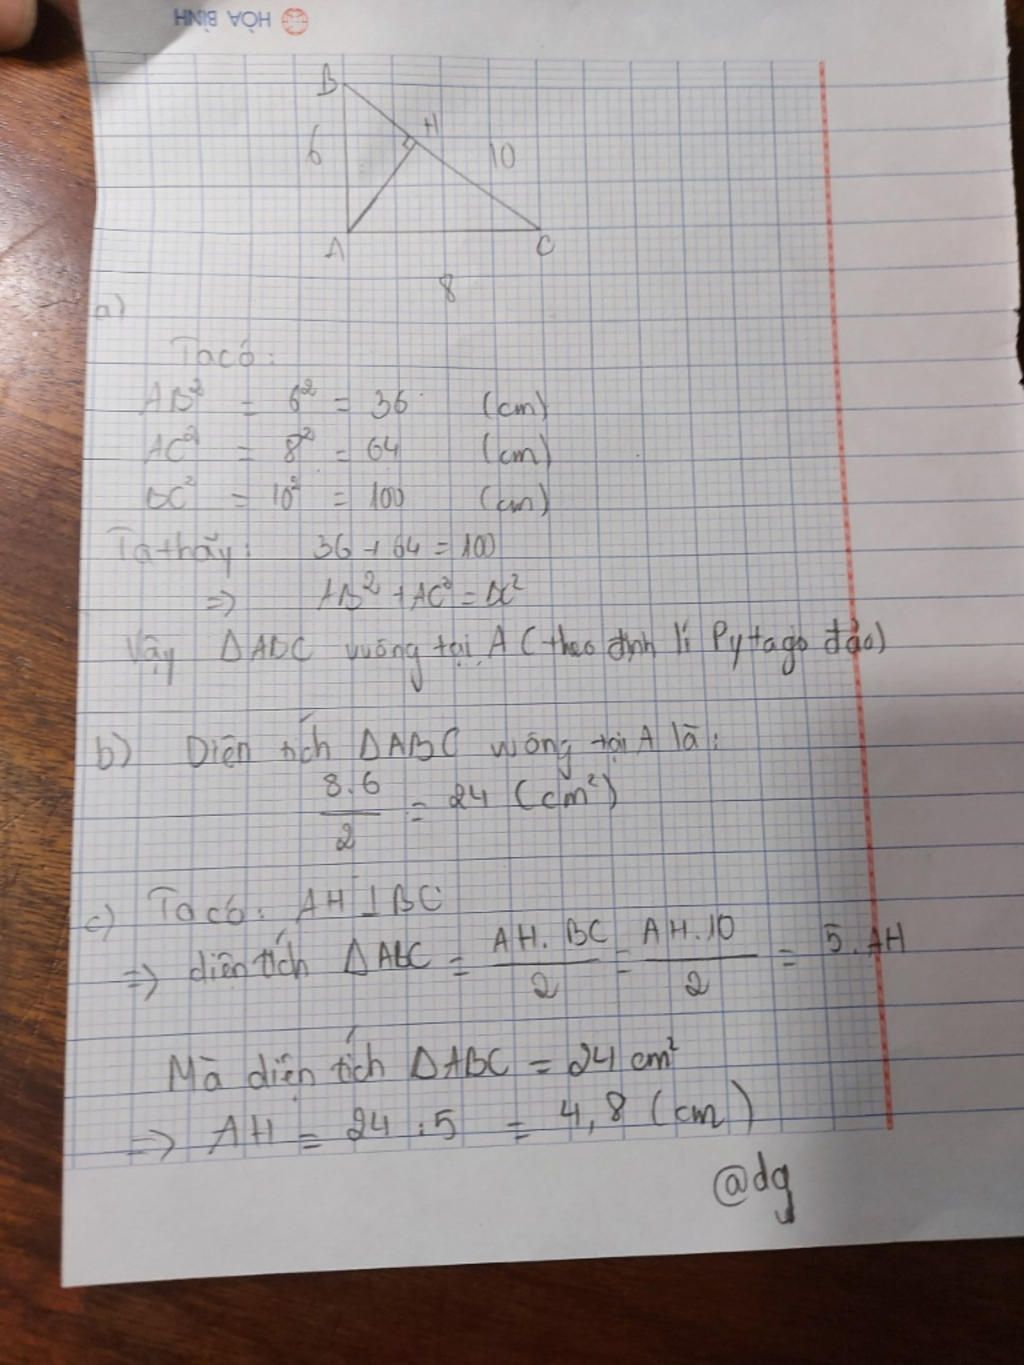 HÒA BÌNH
B
H
6
10
A
C
8
a)
Ta có:
AB² = 6² = 36 (cm)
AC² = 8² = 64 (cm)
BC² = 10² = 100 (cm)
Ta thấy: 36 + 64 = 100
=> AB² + AC² = BC²
Vậy ΔABC vuông tại A (theo định lí Pytago đảo)
b) Diện tích ΔABC vuông tại A là:
8.6/2 = 24 (cm²)
c) Ta có: AH ⊥ BC
=> diện tích ΔABC = AH.BC/2 = AH.10/2 = 5.AH
Mà diện tích ΔABC = 24 cm²
=> AH = 24:5 = 4,8 (cm)
@dg